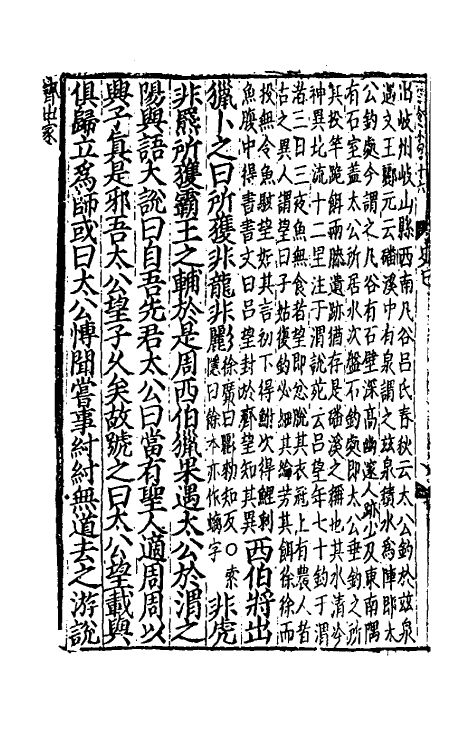 出岐州岐山縣西南凡谷吕氏春秋云太公釣於兹泉
遇文王酈元云磻溪中有泉謂之兹泉積水為陣即太
公釣處今謂之凡谷有石壁深高幽邃人跡少及東南隅
有石室蓋太公所居水次盤石釣處即太公垂釣之所
其投竿跪餌兩膝遺跡猶存是磻溪之稱也其水清泠
神異北流十二里注于渭說苑云吕望年七十釣于渭
渚三日三夜魚無食者望即忿脫其衣冠上有農人者
古之異人謂望曰子姑復釣必細其綸芳其餌徐徐而
投無令魚駭望如其言初下得鮒次得鯉刺
魚腹中得書書文曰吕望封於齊望知其異 西伯將出
獵卜之曰所獲非龍非彲徐廣曰彲勑知反○索隱曰徐本亦作螭字 非虎
非羆所獲霸王之輔於是周西伯獵果遇太公於渭之
陽與語大說曰自吾先君太公曰當有聖人適周周以
興子真是邪吾太公望子久矣故號之曰太公望載與
俱歸立為師或曰太公博聞嘗事紂紂無道去之游說
齊世家